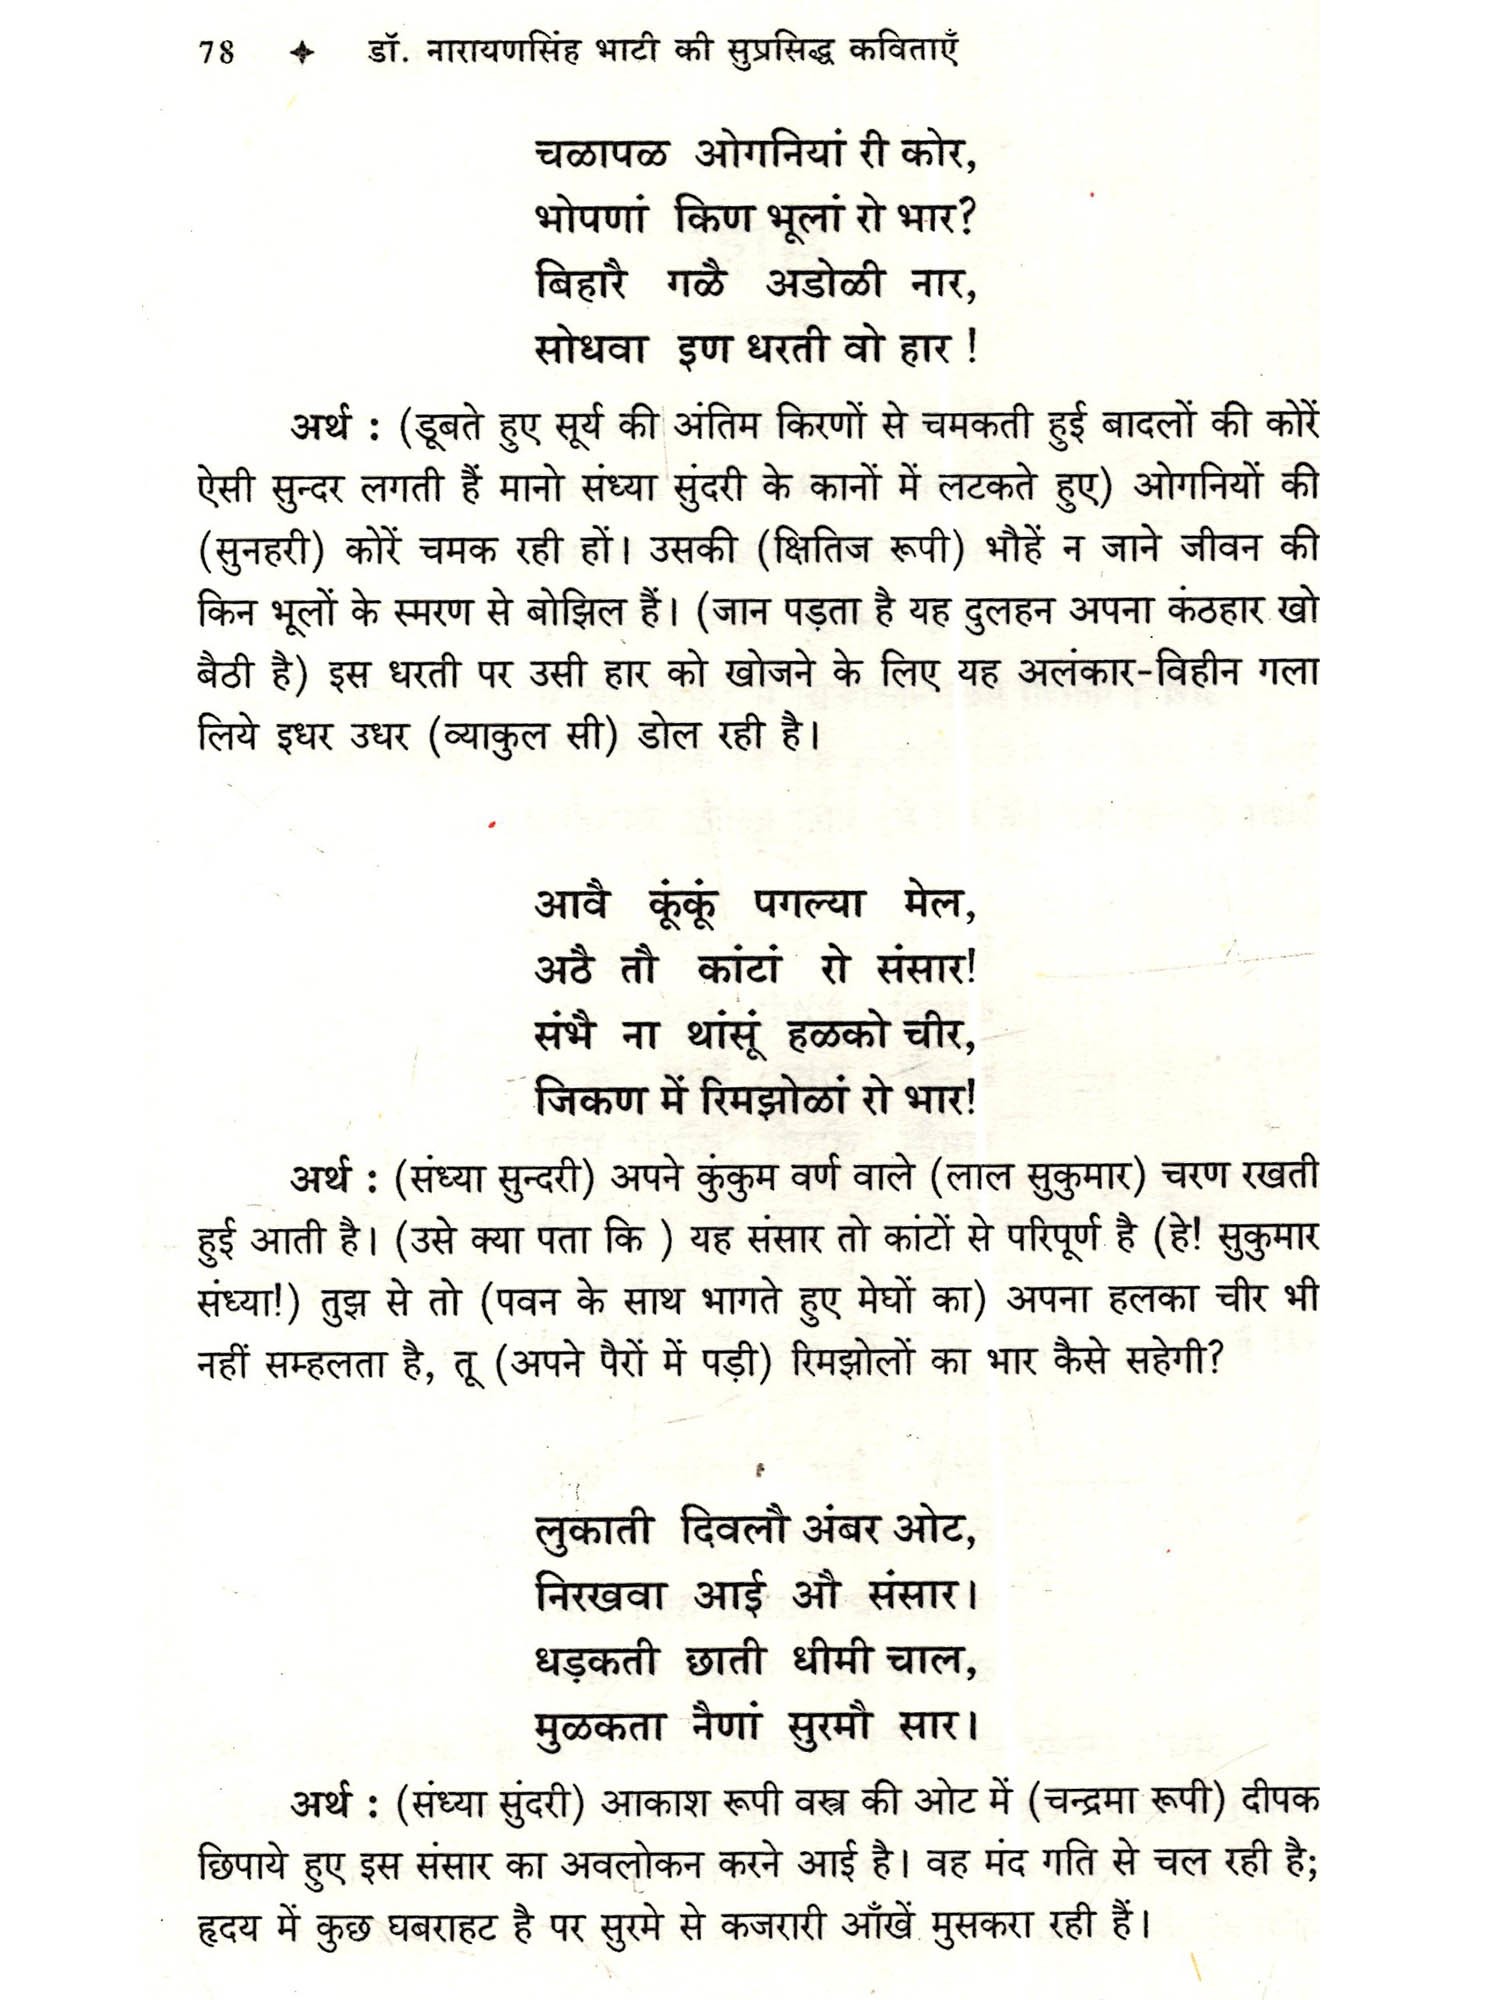 78 ✦ डॉ. नारायणसिंह भाटी की सुप्रसिद्ध कविताएँ
चळापळ ओगनियां री कोर,
भोपणां किण भूलां रो भार?
बिहारै गळै अडोळी नार,
सोधवा इण धरती वो हार !
अर्थ : (डूबते हुए सूर्य की अंतिम किरणों से चमकती हुई बादलों की कोरें
ऐसी सुन्दर लगती हैं मानो संध्या सुंदरी के कानों में लटकते हुए) ओगनियों की
(सुनहरी) कोरें चमक रही हों। उसकी (क्षितिज रूपी) भौहें न जाने जीवन की
किन भूलों के स्मरण से बोझिल हैं। (जान पड़ता है यह दुलहन अपना कंठहार खो
बैठी है) इस धरती पर उसी हार को खोजने के लिए यह अलंकार-विहीन गला
लिये इधर उधर (व्याकुल सी) डोल रही है।
आवै कूंकूं पगल्या मेल,
अठै तौ कांटां रो संसार!
संभै ना थांसूं हळको चीर,
जिकण में रिमझोळां रो भार!
अर्थ : (संध्या सुन्दरी) अपने कुंकुम वर्ण वाले (लाल सुकुमार) चरण रखती
हुई आती है। (उसे क्या पता कि ) यह संसार तो कांटों से परिपूर्ण है (हे! सुकुमार
संध्या!) तुझ से तो (पवन के साथ भागते हुए मेघों का) अपना हलका चीर भी
नहीं सम्हलता है, तू (अपने पैरों में पड़ी) रिमझोलों का भार कैसे सहेगी?
लुकाती दिवलौ अंबर ओट,
निरखवा आई औ संसार।
धड़कती छाती धीमी चाल,
मुळकता नैणां सुरमौ सार।
अर्थ : (संध्या सुंदरी) आकाश रूपी वस्त्र की ओट में (चन्द्रमा रूपी) दीपक
छिपाये हुए इस संसार का अवलोकन करने आई है। वह मंद गति से चल रही है;
हृदय में कुछ घबराहट है पर सुरमे से कजरारी आँखें मुसकरा रही हैं।